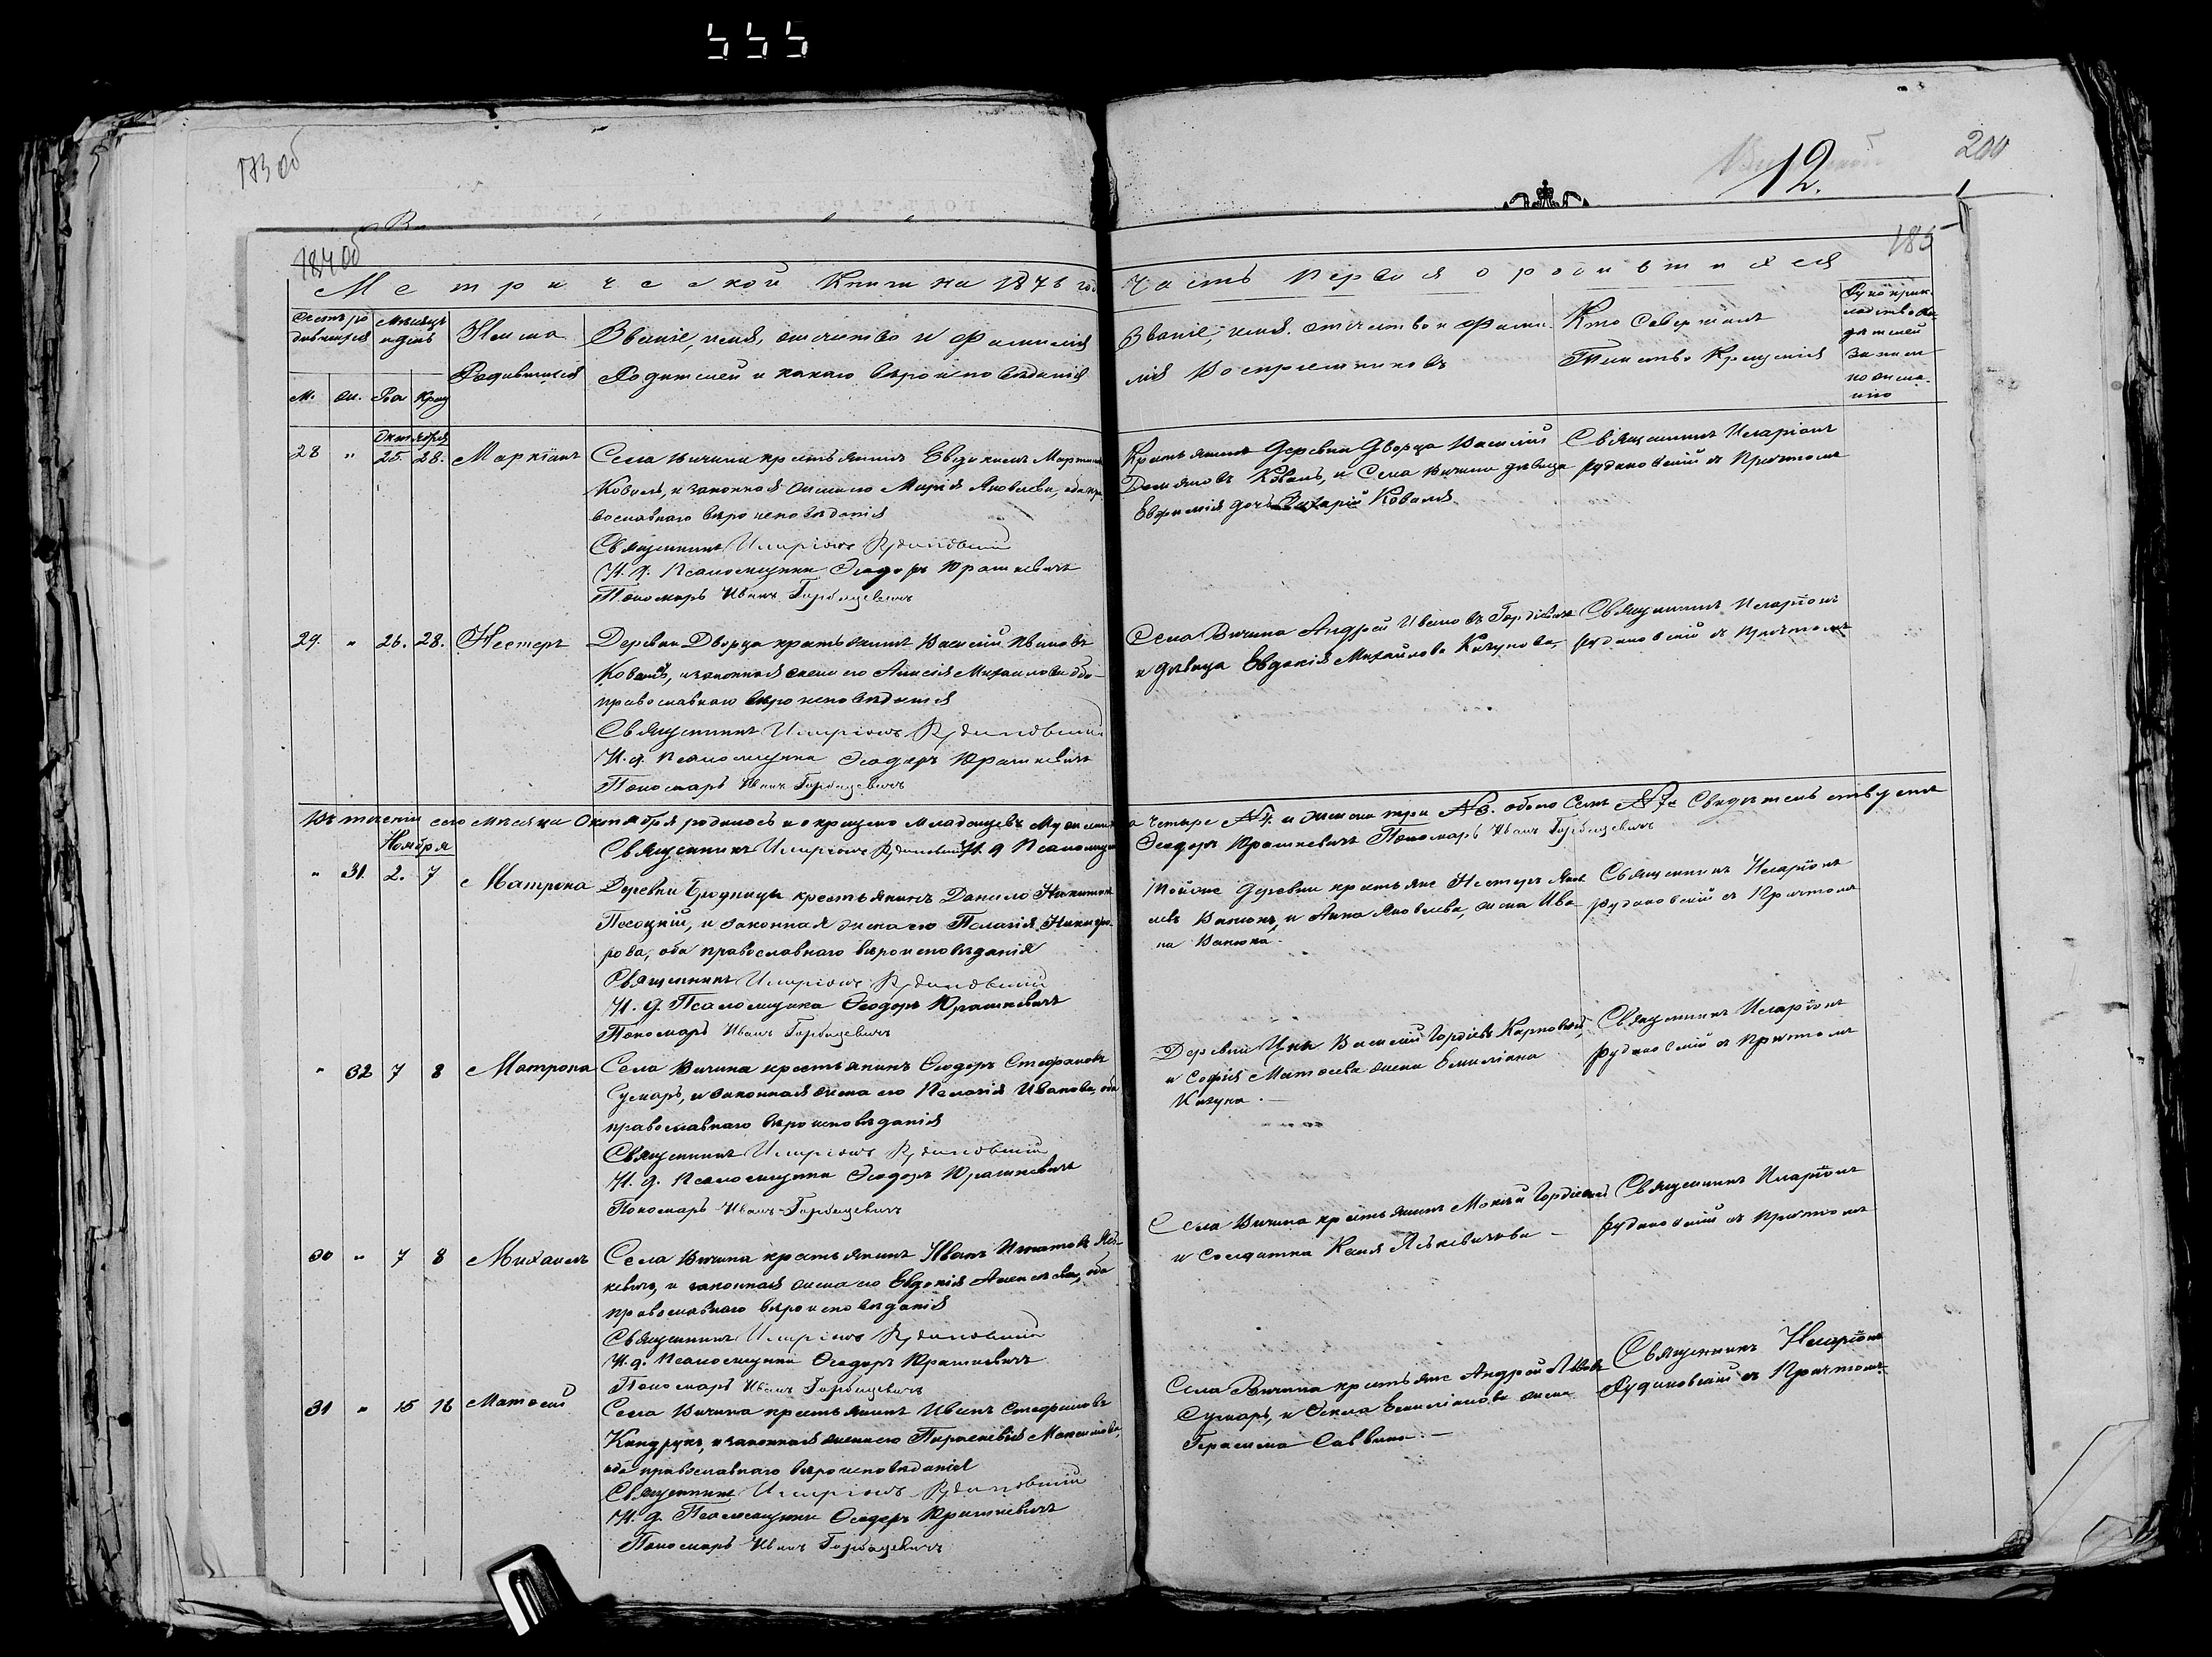 555
173 об
12.
200
184 об
185
Метрической Книги на 1876 год
Часть первая о родившихся
Счетъ ро
дившихся
Мѣсяцъ
и день
Имена
Родившихся
Званіе, имя, отчество и фамилія
Родителей и какого вѣроисповѣданія
Званіе, имя, отчество и фами-
лія Воспріемниковъ
Кто совершалъ
Таинство Крещенія
Рукоприк-
ладство сви
дѣтелей
записи
по жела-
нію
М. Ж. Рож Крещ
Октября
28 " 25. 28. Маркіанъ
Села Вичина крестьянинъ Евдокимъ Мартин
Коваль, и законная жена его Марія Яковлева, оба пра
вославнаго вѣроисповѣданія
Священникъ Иларіонъ Рудаковскій
И. д. Псаломщика Ѳеодоръ Юрашкевичъ
Пономарь Иванъ Горбацевичъ
Крестьянинъ Деревни Дворца Василій
Коваль, и Села Вичина дѣвица
Евфимія дочь Захарій Коваля
Священникъ Иларіонъ
Рудаковскій съ Причтомъ
29. " 26. 28. Нестеръ
Деревни Дворца крестьянинъ Василій Ивановъ
Коваль, и законная жена его Михаилова оба
православнаго вѣроисповѣданія
Священникъ Иларіонъ Рудаковскій
И. д. Псаломщика Ѳеодоръ Юрашкевичъ
Пономарь Иванъ Горбацевичъ
Села Вичина Андрей Ивановъ Гордѣевичъ
и дѣвица Евдокія Михайлова Качунова,
Священникъ Иларіонъ
Рудаковскій съ Причтомъ
Въ теченіи сего мѣсяца Октября родилось и окрещено младенцевъ Мужеска
а четыре №4. и женска три №3. обоего семь №7. Свидѣтельствуемъ
Священникъ Иларіонъ Рудаковскій И. д Псаломщи
Ѳеодоръ Юрашкевичъ Пономарь Иванъ Горбацевичъ
Ноября
" 31. 2. 7 Матрона
Деревни Бродница крестьянинъ Данило Никитинъ
Посоцкій, и законная жена его Пелагія Никифо-
рова, оба православнаго вѣроисповѣданія
Священникъ Иларіонъ Рудаковскій
И. д. Псаломщика Ѳеодоръ Юрашкевичъ
Пономарь Иванъ Горбацевичъ
Тойже Деревни крестьяне Нестеръ Яков
левъ Ванюкъ, и Анна Яковлева, жена Ива-
на Ванюка.
Священникъ Иларіонъ
Рудаковскій съ Причтомъ
" 32 7 8 Матрона
Села Вичина крестьянинъ Ѳеодоръ Стефановъ
Сушаръ, и законная жена его Пелагія Иванова, оба
православнаго вѣроисповѣданія
Священникъ Иларіонъ Рудаковскій
И. д. Псаломщика Ѳеодоръ Юрашкевичъ
Пономарь Иванъ Горбацевичъ
Деревни Цна Василій Гордѣевъ Карповичъ,
и Софія Матѳеева жена Емиліана
Качуна. —
Священникъ Иларіонъ
Рудаковскій съ Причтомъ
30 " 7 8 Михаилъ
Села Вичина крестьянинъ Иванъ Игнатовъ Яс-
кевичъ, и законная жена его Евдокія Алексѣева, оба
православнаго вѣроисповѣданія
Священникъ Иларіонъ Рудаковскій
И. д. Псаломщика Ѳеодоръ Юрашкевичъ
Пономарь Иванъ Горбацевичъ
Села Вичина крестьянинъ Мокѣй Гордѣевичъ
и солдатка Яськевичова —
Священникъ Иларіонъ
Рудаковскій съ Причтомъ
31 " 15 16 Матѳей
Села Вичина крестьянинъ Иванъ Стефановъ
Киндрукъ, и законная жена его Параскевія Максимова,
оба православнаго вѣроисповѣданія
Священникъ Иларіонъ Рудаковскій
И. д. Псаломщика Ѳеодоръ Юрашкевичъ
Пономарь Иванъ Горбацевичъ
Села Вичина крестьяне Андрей
Сушаръ, и Ѳекла Емиліанова жена
Герасима Саввина. —
Священникъ Иларіонъ
Рудаковскій съ Причтомъ